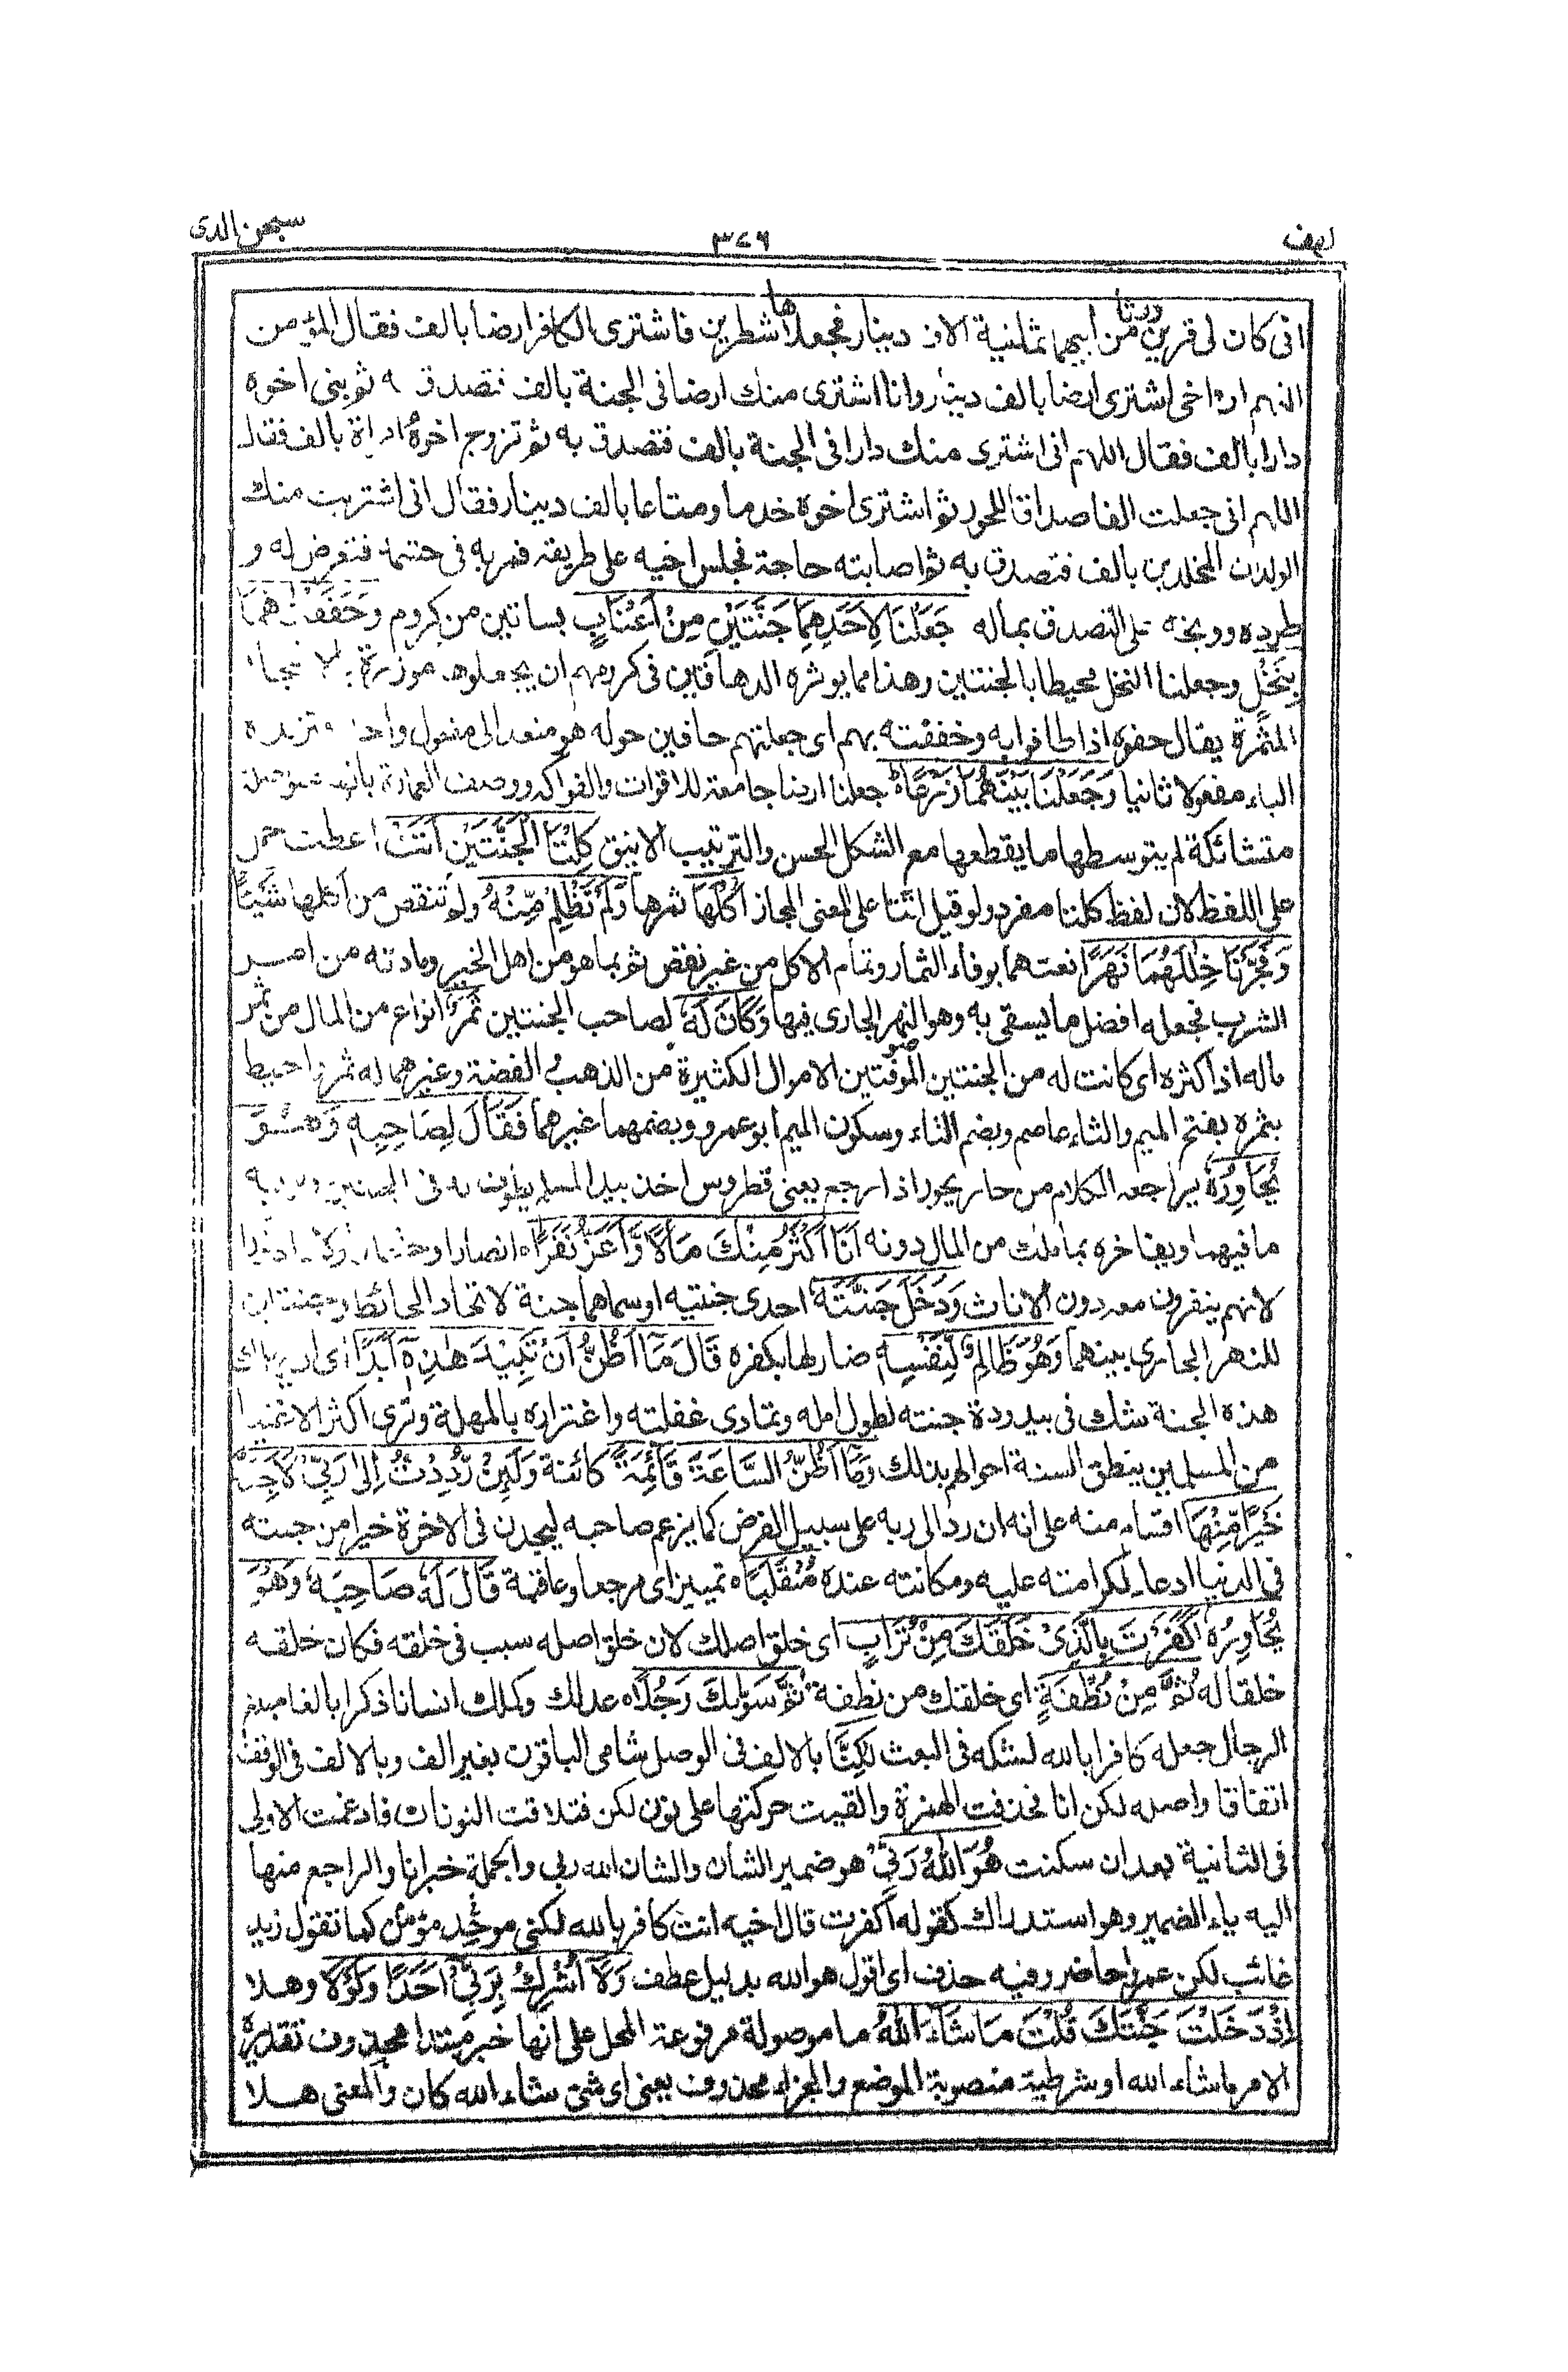 سبحن الذى
٣٤٦
كهف
انى كان لى قرين ورثا من ابيهما ثمنية الاف دينار فجعلاها شطرين فاشترى الكافر ارضا بالف فقال المؤمن
اللهم ان اخى اشترى ارضا بالف دينار وانا اشترى منك ارضا فى الجنة بالف فتصدق به ثم بنى اخوه
دارا بالف فقال اللهم انى اشترى منك دارا فى الجنة بالف فتصدق به ثم تزوج اخوه امراة بالف فقال
اللهم انى جعلت الفا صداقا للحور ثم اشترى اخوه خدما ومتاعا بالف دينار فقال انى اشتريت منك
الولدان المخلدين بالف فتصدق به ثم اصابته حاجة فجلس لخيه على طريقه فمر به فى حشمه فتعرض له و
طرده ووبخه على التصدق بماله جَعَلْنَا لِاَحَدِهِمَا جَنَّتَيْنِ مِنْ اَعْنَابٍ بساتين من كروم وَحَفَفْنٰهُمَا
بِنَخْلٍ وجعلنا النخل محيطا بالجنتين وهذا مما يوثره الدهاقين فى كرومهم ان يجعلوها موزرة بالاشجار
المثمرة يقال حفوه اذا طافوا به وحففته بهم اى جعلتهم حافين حوله هو متعد الى مفعول واحد فتزيده
الباء مفعولا ثانيا وَجَعَلْنَا بَيْنَهُمَا زَرْعًا جعلنا ارضا جامعة للاقوات والفواكه ووصف العمارة بانها متوصلة
متشابكة لم يتوسطها ما يقطعها مع الشكل الحسن والترتيب الانيق كِلْتَا الْجَنَّتَيْنِ اٰتَتْ اعطت حمل
على اللفظ لان لفظ كلتا مفرد ولو قيل اتتا على المعنى لجاز اُكُلَهَا ثمرها وَلَمْ تَظْلِمْ مِّنْهُ ولم تنقص من اكلها شَيْئًا
وَفَجَّرْنَا خِلٰلَهُمَا نَهَرًا نعتهما بوفاء الثمار وتمام الاكل من غير نقص ثم بما هو من اهل الخير ومادته من امر
الشرب فجعله افضل ما يسقى به وهو النهر الجارى فيها وَكَانَ لَهٗ لصاحب الجنتين ثَمَرٌ انواع من المال من ثمر
ماله اذا كثره اى كانت له من الجنتين الموصوفتين الاموال الكثيرة من الذهب والفضة وغيرهما له ثمر واحيط
بثمره بفتح الميم والثاء عاصم وبضم الثاء وسكون الميم ابو عمرو وبضمهما غيرهما فَقَالَ لِصَاحِبِهٖ وَهُوَ
يُحَاوِرُهٗ يراجعه الكلام من حار يحور اذا رجع يعنى قطروس اخذ بيد المسلم يطوف به فى الجنتين ويريه
ما فيهما ويفاخره بما ملك من المال دونه اَنَا اَكْثَرُ مِنْكَ مَالًا وَّاَعَزُّ نَفَرًا انصارا وحشما او
لانهم ينفرون معه دون الاناث وَدَخَلَ جَنَّتَهٗ احدى جنتيه او سماهما جنة لاتحاد الحائط وجنتين
للنهر الجارى بينهما وَهُوَ ظَالِمٌ لِّنَفْسِهٖ ضار لها بكفره قَالَ مَا اَظُنُّ اَنْ تَبِيْدَ هٰذِهٖ اَبَدًا اى ان يهلك
هذه الجنة شك فى بيدودة جنته لطول امله وتمادى غفلته واغتراره بالمهلة وترى اكثر الاغنياء
من المسلمين ينطق السنة احوالهم بذلك وَمَا اَظُنُّ السَّاعَةَ قَائِمَةً كائنة وَلَئِنْ رُّدِدْتُّ اِلٰى رَبِّيْ لَاَجِدَنَّ
خَيْرًا مِّنْهَا اقسام منه على انه ان رد الى ربه على سبيل الفرض كما يزعم صاحبه ليجدن فى الاخرة خيرا من جنته
فى الدنيا ادعاء لكرامته عليه ومكانته عنده مُنْقَلَبًا تمييز اى مرجعا وعاقبة قَالَ لَهٗ صَاحِبُهٗ وَهُوَ
يُحَاوِرُهٗ اَكَفَرْتَ بِالَّذِيْ خَلَقَكَ مِنْ تُرَابٍ اى خلق اصلك لان خلق اصله سبب فى خلقه فكان خلقه
خلقا له ثُمَّ مِنْ نُّطْفَةٍ اى خلقك من نطفة ثُمَّ سَوّٰىكَ رَجُلًا عدلك وكملك انسانا ذكرا بالغا مبلغ
الرجال جعله كافرا بالله لشكه فى البعث لٰكِنَّا بالالف فى الوصل شامى الباقون بغير الف وبالالف فى الوقف
اتفاقا واصله لكن انا فحذفت الهمزة والقيت حركتها على نون لكن فتلاقت النونان فادغمت الاولى
فى الثانية بعد ان سكنت هُوَ اللّٰهُ رَبِّيْ هو ضمير الشان والشان الله ربى والجملة خبر انا والراجع منها
اليه ياء الضمير وهو استدراك لقوله اكفرت قال لاخيه انت كافر بالله لكنى موحد مؤمن كما تقول زيد
غائب لكن عمرا حاضر وفيه حذف اى اقول هو الله بدليل عطف وَلَا اُشْرِكُ بِرَبِّيْ اَحَدًا وَلَوْلَا وهلا
اِذْ دَخَلْتَ جَنَّتَكَ قُلْتَ مَا شَاءَ اللّٰهُ ما موصولة مرفوعة المحل على انها خبر مبتدا محذوف تقديره
الامر ما شاء الله او شرطية منصوبة الموضع والجزاء محذوف يعنى اى شئ شاء الله كان والمعنى هلا